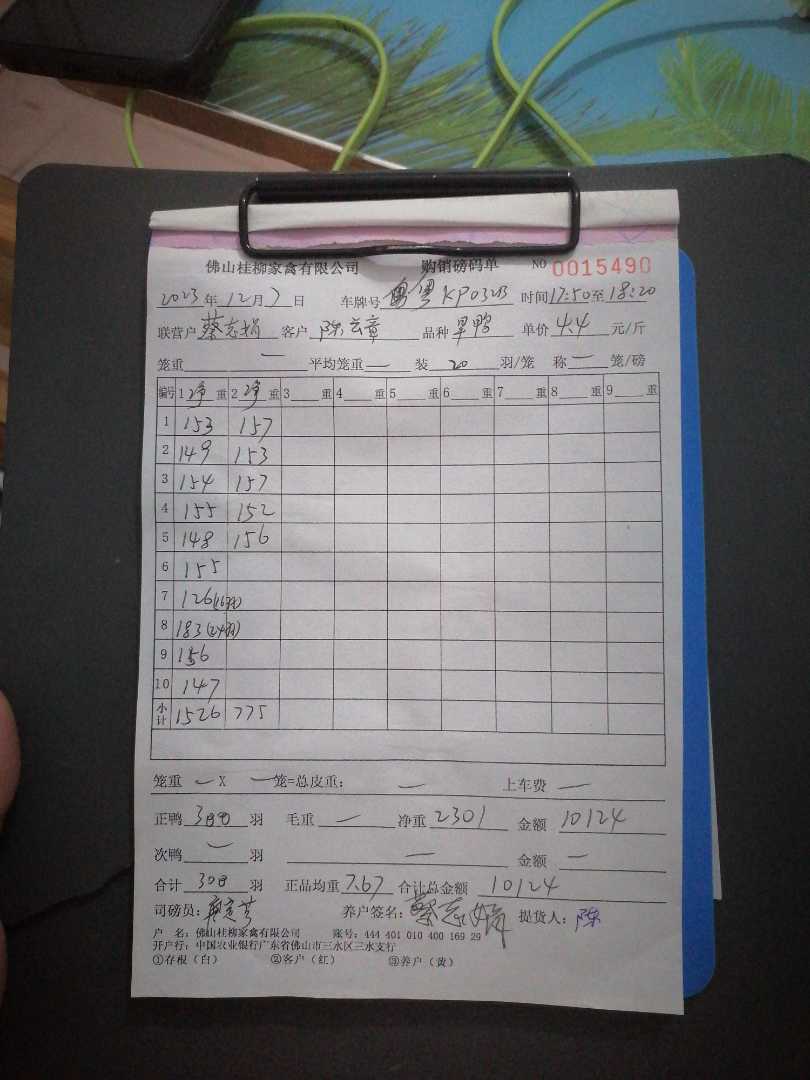 佛山桂柳家禽有限公司 购销磅码单 NO 0015490
2023年12月7日 车牌号 粤KP0323 时间17:50至18:20
联营户 蔡志娟 客户 陈云章 品种 旱鸭 单价 4.4 元/斤
笼重 — 平均笼重 — 装 20 羽/笼 称 — 笼/磅
编号 1 净 重 2 净 重 3 重 4 重 5 重 6 重 7 重 8 重 9 重
1 153 157
2 149 153
3 154 157
4 155 152
5 148 156
6 155
7 126(16羽)
8 183(24羽)
9 156
10 147
小计 1526 775
笼重 — X — 笼=总皮重: — 上车费 —
正鸭 300 羽 毛重 — 净重 2301 金额 10124
次鸭 — 羽 — 金额 —
合计 300 羽 正品均重 7.67 合计总金额 10124
司磅员: 养户签名: 蔡志娟 提货人: 陈
户 名: 佛山桂柳家禽有限公司 账号: 444 401 010 400 169 29
开户行: 中国农业银行广东省佛山市三水区三水支行
①存根(白) ②客户(红) ③养户(黄)